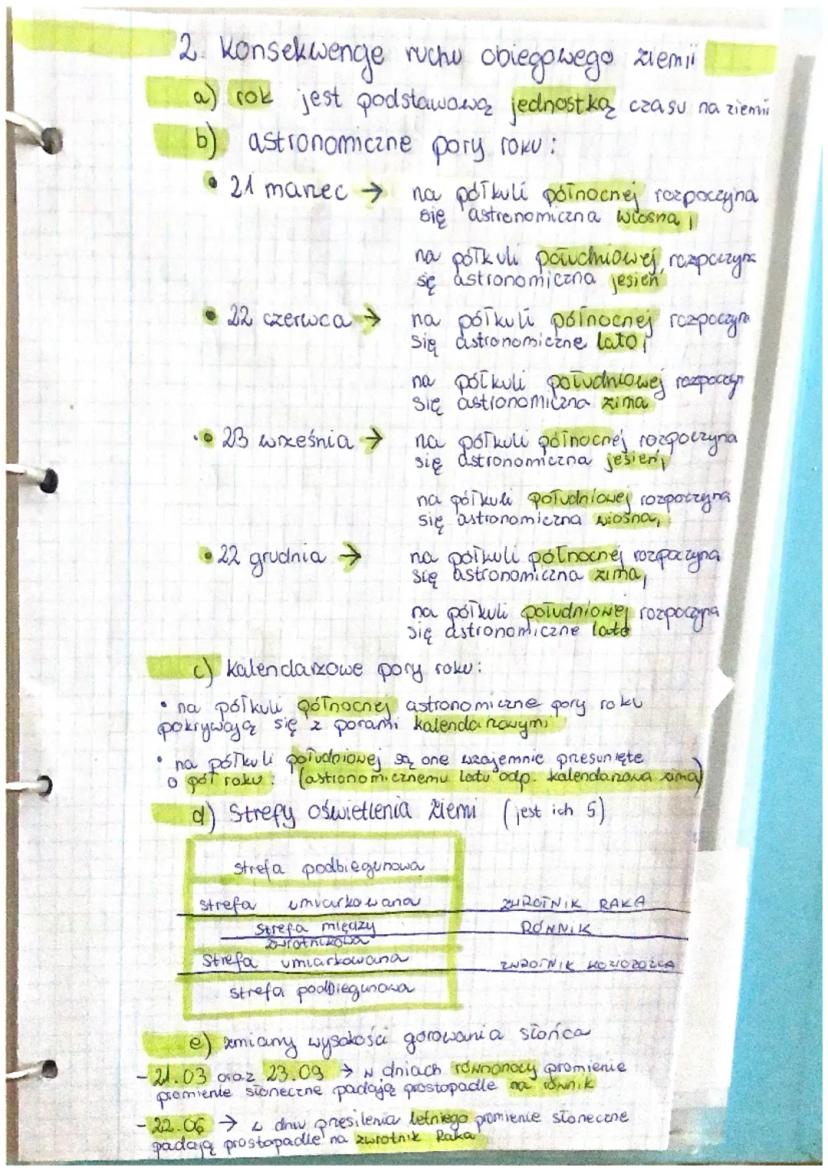 2. Konsekwencje ruchu obiegowego ziemii
a) rok jest podstawową jednostką czasu na ziemii
b) astronomiczne pory roku:
• 21 marzec → na półkuli północnej rozpoczyna
się astronomiczna wiosna,
na półkuli południowej, rozpoczyna
się astronomiczna jesień
• 22 czerwca → na półkuli północnej rozpoczyna
się astronomiczne lato,
na półkuli południowej rozpoczyn
się astronomiczna zima
• 23 września → na półkuli północnej rozpoczyna
się astronomiczna jesień,
na półkuli południowej rozpoczyna
się astronomiczna wiosna,
• 22 grudnia → na półkuli północnej rozpoczyna
się astronomiczna zima,
na półkuli południowej rozpoczyna
się astronomiczne lato
c) kalendarzowe pory roku:
• na półkuli północnej astronomiczne pory roku
pokrywają się z porami kalendarzowymi
• na półkuli południowej są one wzajemnie przesunięte
o pół roku: (astronomicznemu latu odp. kalendarzowa zima)
d) Strefy oświetlenia ziemi (jest ich 5)
strefa podbiegunowa
strefa umiarkowana ZWROTNIK RAKA
strefa między RÓWNIK
zwrotnikowa
strefa umiarkowana ZWROTNIK KOZIOROŻCA
strefa podbiegunowa
e) zmiany wysokości górowania słońca
- 21.03 oraz 23.09 → w dniach równonocy promienie
promienie słoneczne padają prostopadle na równik
- 22.06 → z dniu przesilenia letniego promienie słoneczne
padają prostopadle na zwrotnik Raka